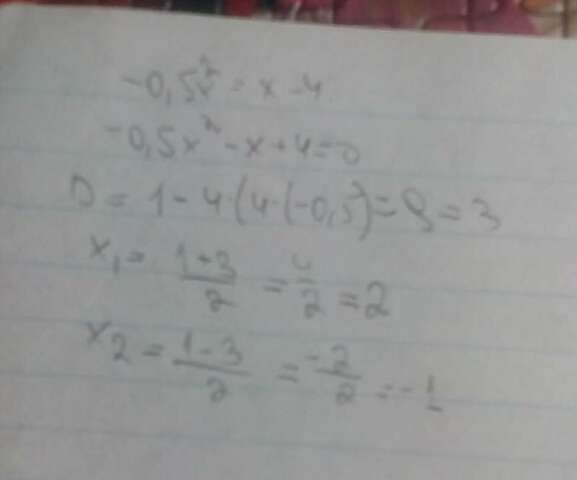 -0,5x² = x - 4
-0,5x² - x + 4 = 0
D = 1 - 4 · (4 · (-0,5) = 9 = 3
x₁ = \frac{1+3}{2} = \frac{4}{2} = 2
x₂ = \frac{1-3}{2} = \frac{-2}{2} = -1